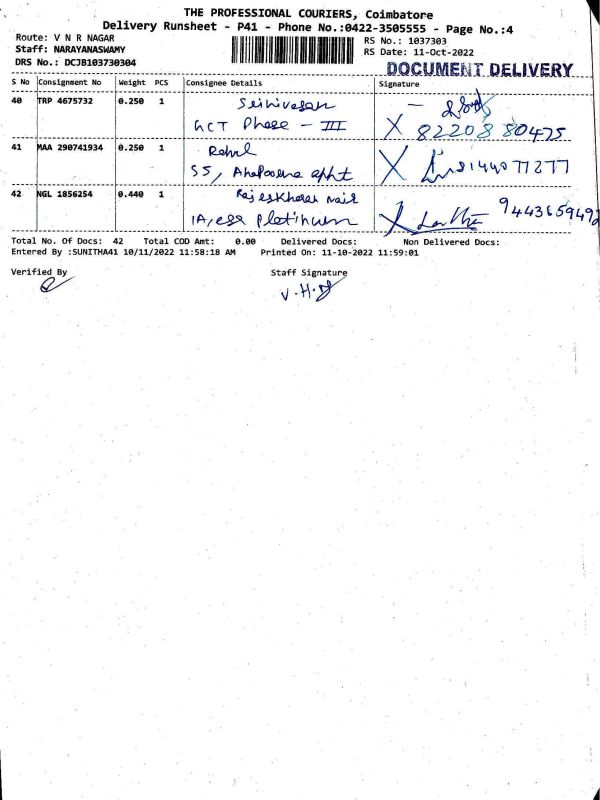 THE PROFESSIONAL COURIERS, Coimbatore
Delivery Runsheet - P41 - Phone No.:0422-3505555 - Page No.:4
Route: V N R NAGAR RS No.: 1037303
Staff: NARAYANASWAMY RS Date: 11-Oct-2022
DRS No.: DCJB103730304 DOCUMENT DELIVERY
S No Consignment No Weight PCS Consignee Details Signature
40 TRP 4675732 0.250 1 Srinivasan
GCT Phase - III X 82208 80475
41 MAA 290741934 0.250 1 Rahul X
S5, apht 8144077277
42 NGL 1856254 0.440 1 Rajeskharan nair X Latha 9443659492
1A, platinum
Total No. Of Docs: 42 Total COD Amt: 0.00 Delivered Docs: Non Delivered Docs:
Entered By :SUNITHA41 10/11/2022 11:58:18 AM Printed On: 11-10-2022 11:59:01
Verified By Staff Signature